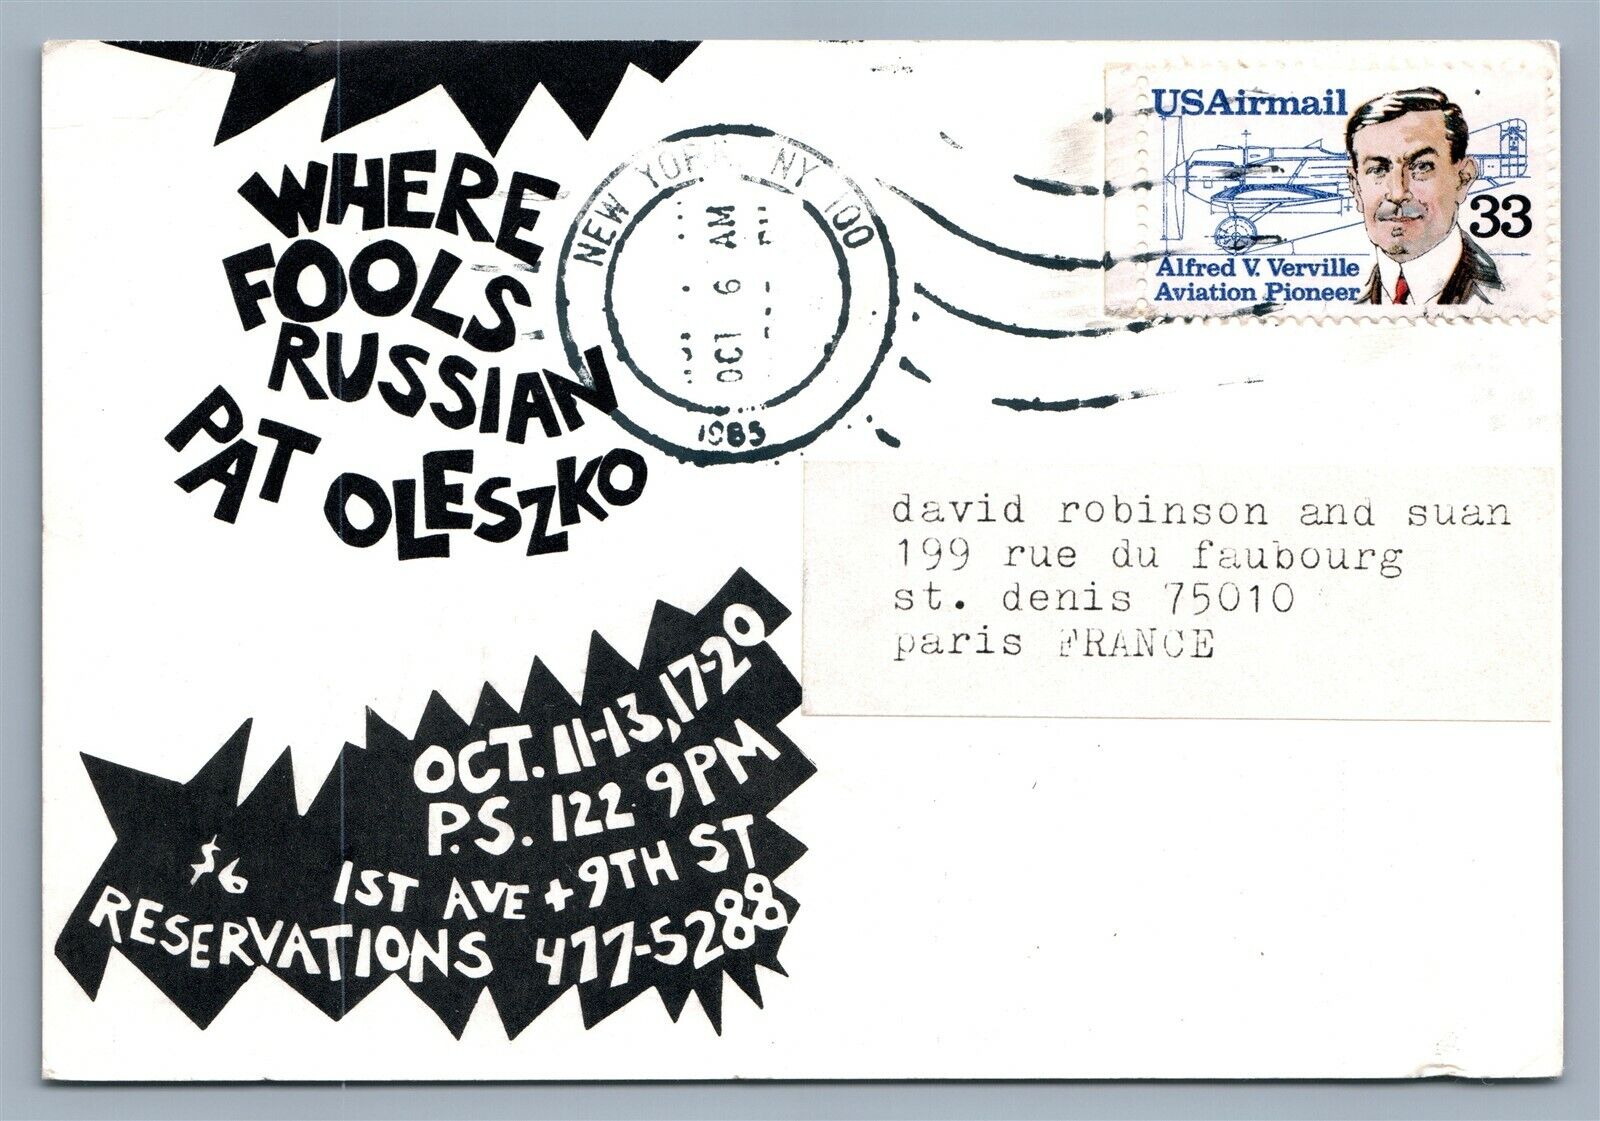 WHERE
FOOLS
RUSSIAN
PAT OLESZKO
NEW YORK, NY 100
OCT 6 AM
1985
USAirmail
33
Alfred V. Verville
Aviation Pioneer
david robinson and suan
199 rue du faubourg
st. denis 75010
paris FRANCE
OCT. 11-13, 17-20
P.S. 122 9PM
$6 1ST AVE + 9TH ST
RESERVATIONS 477-5288